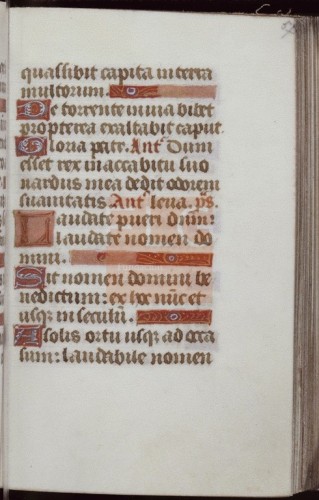 quassabit capita in terra
multorum.
De torrente in via bibet
propterea exaltabit caput.
Gloria patr. Ant Dum
esset rex in accubitu suo
nardus mea dedit odorem
suavitatis Ant leva. ps.
Laudate pueri dnm:
laudate nomen do
mini.
Sit nomen domini be
nedictum: ex hoc nūc et
usqȝ in seculū.
A solis ortu usqȝ ad occa
sum: laudabile nomen